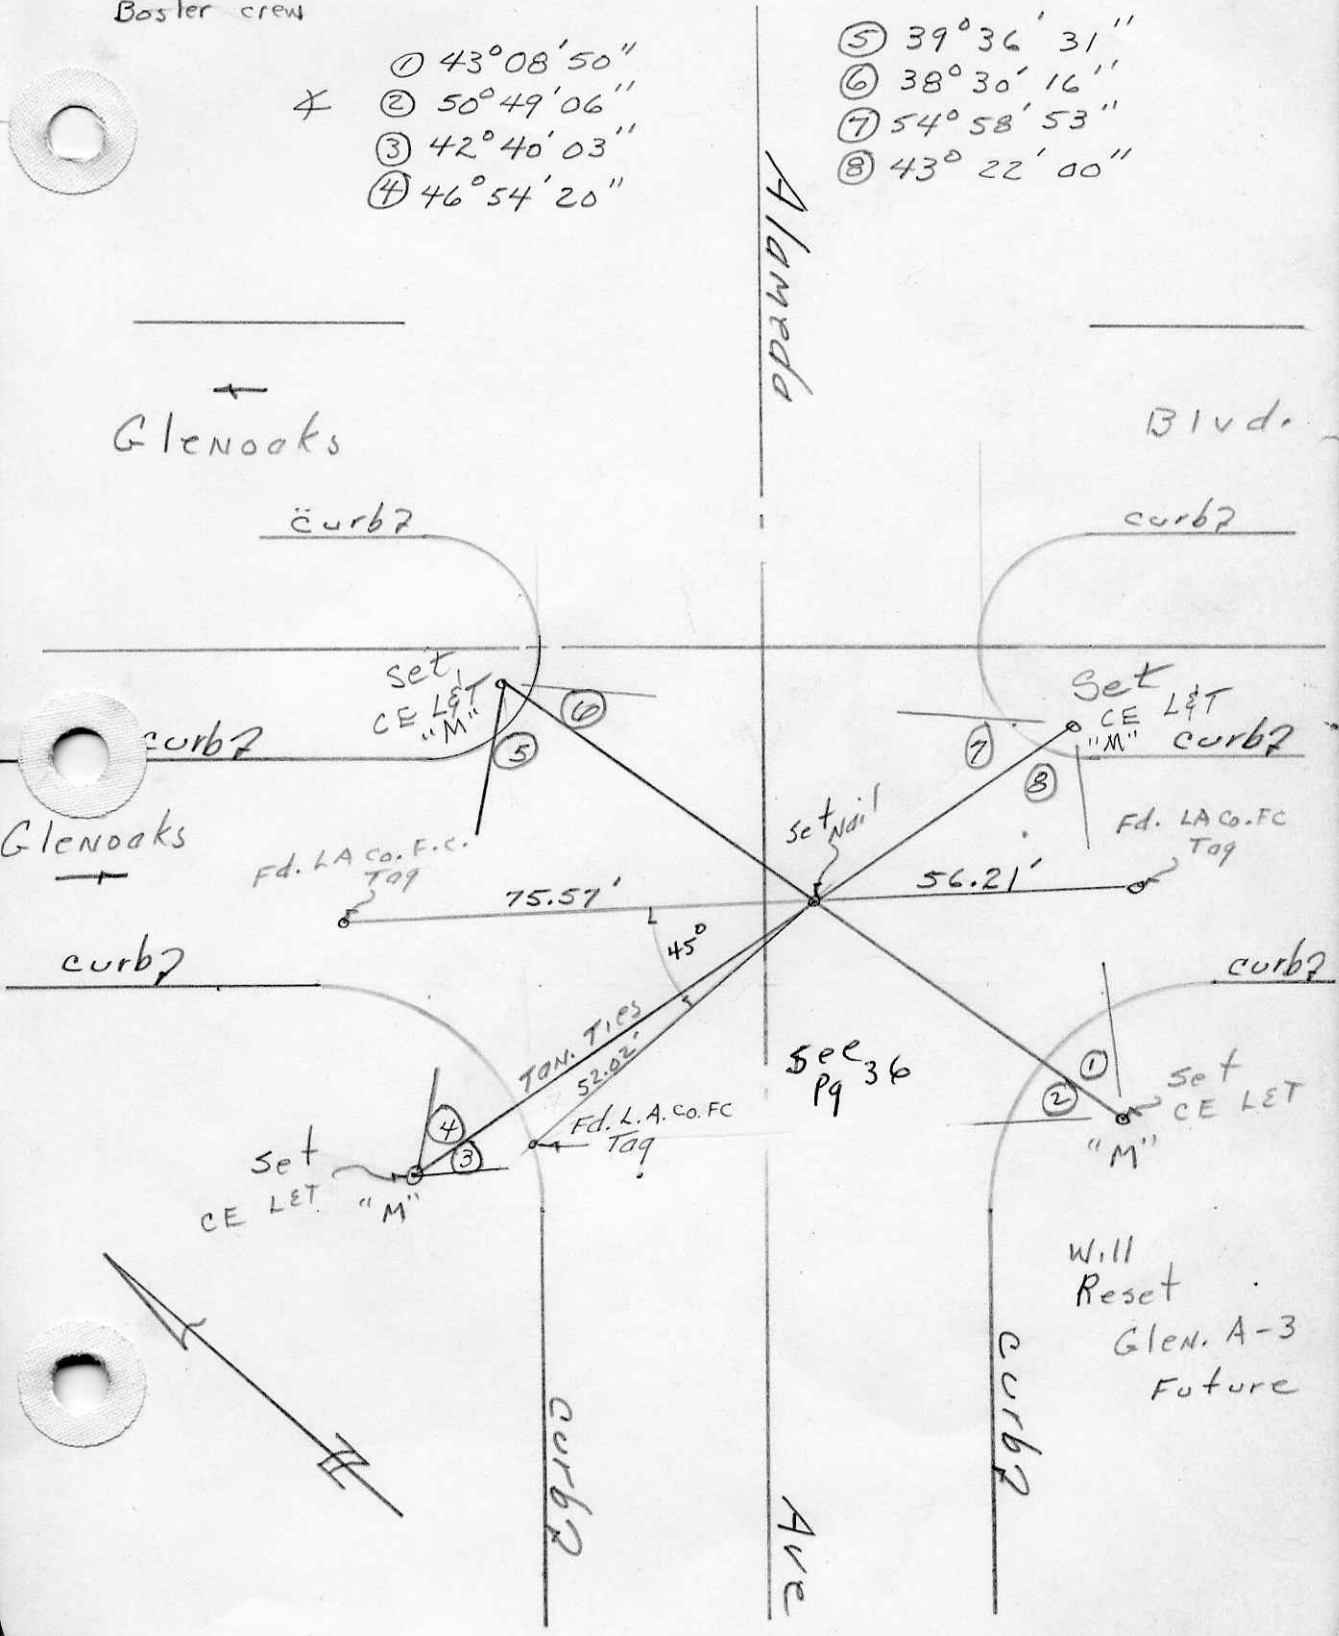 Boster crew
① 43° 08' 50"
∡ ② 50° 49' 06"
③ 42° 40' 03"
④ 46° 54' 20"
⑤ 39° 36' 31"
⑥ 38° 30' 16"
⑦ 54° 58' 53"
⑧ 43° 22' 00"
Alameda
Glenoaks
Blvd.
curb
curb
Set
CE L&T
"M"
⑥
⑤
curb
Set
CE L&T
"M"
curb
⑦
⑧
Glenoaks
Fd. LA Co. F.C.
Tag
Set Nail
Fd. LA Co. FC
Tag
75.57'
56.21'
45°
curb
curb
Tan. Ties
52.02'
See
Pg 36
①
②
Set
CE L&T
"M"
④
③
Fd. L.A. Co. FC
Tag
Set
CE L&T.
"M"
Will
Reset
Glen. A-3
Future
curb
curb
Ave